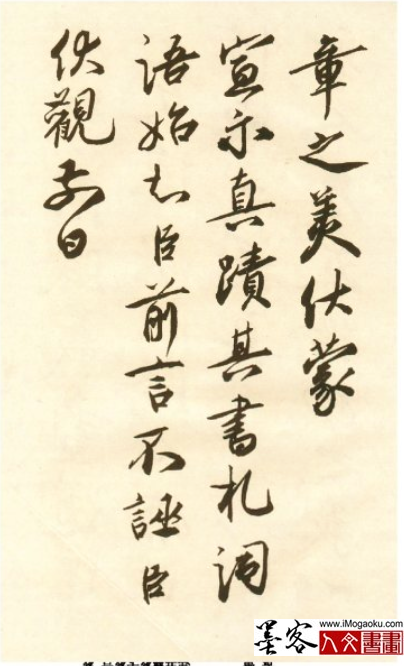 章之美伏蒙
宣示真蹟其書札詞
語始知臣前言不誣臣
伏觀前日
www.iMogaoku.com
墨客
人文書畫